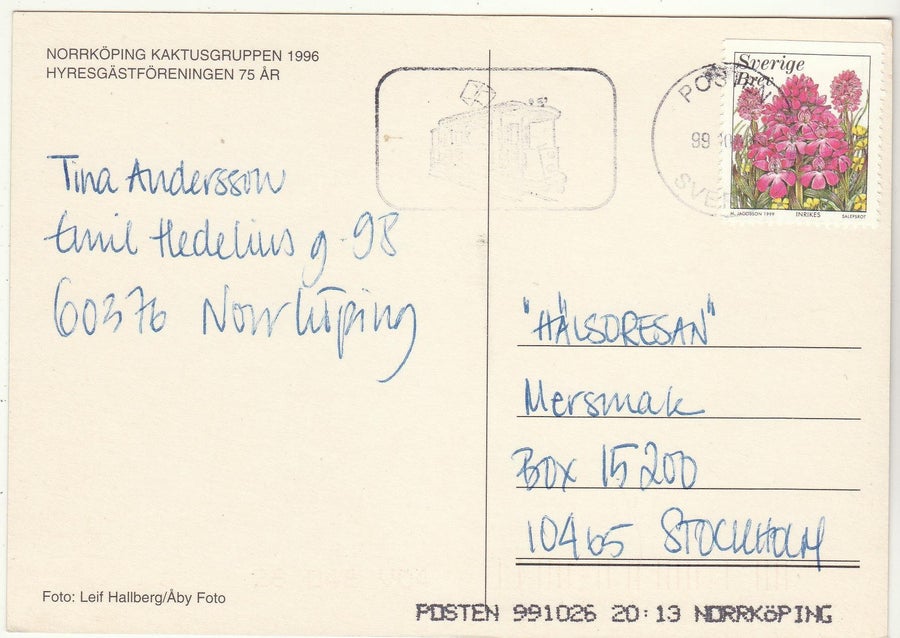 NORRKÖPING KAKTUSGRUPPEN 1996
HYRESGÄSTFÖRENINGEN 75 ÅR
Tina Andersson
Emil Hedelius g. 98
60376 Norrköping
Foto: Leif Hallberg/Åby Foto
POSTEN
99 10
Sverige
Brev
M. JACOBSSON 1999 INRIKES SALEPSROT
"HÄLSORESAN"
Mersmak
Box 15200
10465 STOCKHOLM
POSTEN 991026 20:13 NORRKöPING